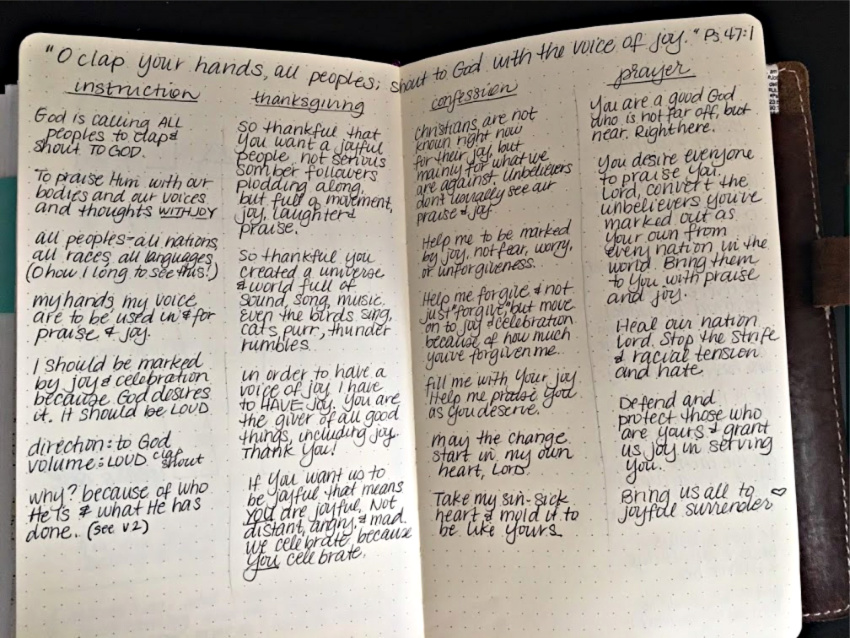 "O clap your hands, all peoples; shout to God with the voice of joy." Ps. 47:1
instruction
God is calling ALL
peoples to clap &
shout TO GOD.
To praise Him with our
bodies and our voices
and thoughts WITH JOY
all peoples-all nations,
all races, all languages
(O how I long to see this!)
my hands my voice
are to be used in & for
praise & joy.
I should be marked
by joy & celebration
because God desires
it. It should be LOUD
direction: to God
volume: LOUD clap
shout
why? because of who
He is & what He has
done. (see v2)
thanksgiving
so thankful that
you want a joyful
people, not serious
somber followers
plodding along,
but full of movement,
joy, laughter &
praise.
so thankful you
created a universe
& world full of
sound, song, music.
Even the birds sing,
cats purr, thunder
rumbles.
in order to have a
voice of joy I have
to HAVE joy. You are
the giver of all good
things, including joy.
Thank you!
If You want us to
be joyful that means
you are joyful, Not
distant, angry, & mad.
we celebrate, because
You celebrate.
confession
Christians are not
known right now
for their joy, but
mainly for what we
are against. Unbelievers
don't usually see our
praise & joy.
Help me to be marked
by joy, not fear, worry,
or unforgiveness.
Help me forgive & not
just "forgive," but move
on to joy & celebration
because of how much
you've forgiven me.
fill me with Your joy
Help me praise God
as You deserve.
may the change
start in my own
heart, Lord.
Take my sin-sick
heart & mold it to
be like Yours.
prayer
You are a good God
who is not far off, but
near. Right here.
You desire everyone
to praise You.
Lord, convert the
unbelievers you've
marked out as
your own from
every nation in the
world. Bring them
to You with praise
and joy.
Heal our nation
Lord. Stop the strife
& racial tension
and hate.
Defend and
protect those who
are yours & grant
us joy in serving
You.
Bring us all to
joyful surrender ♡